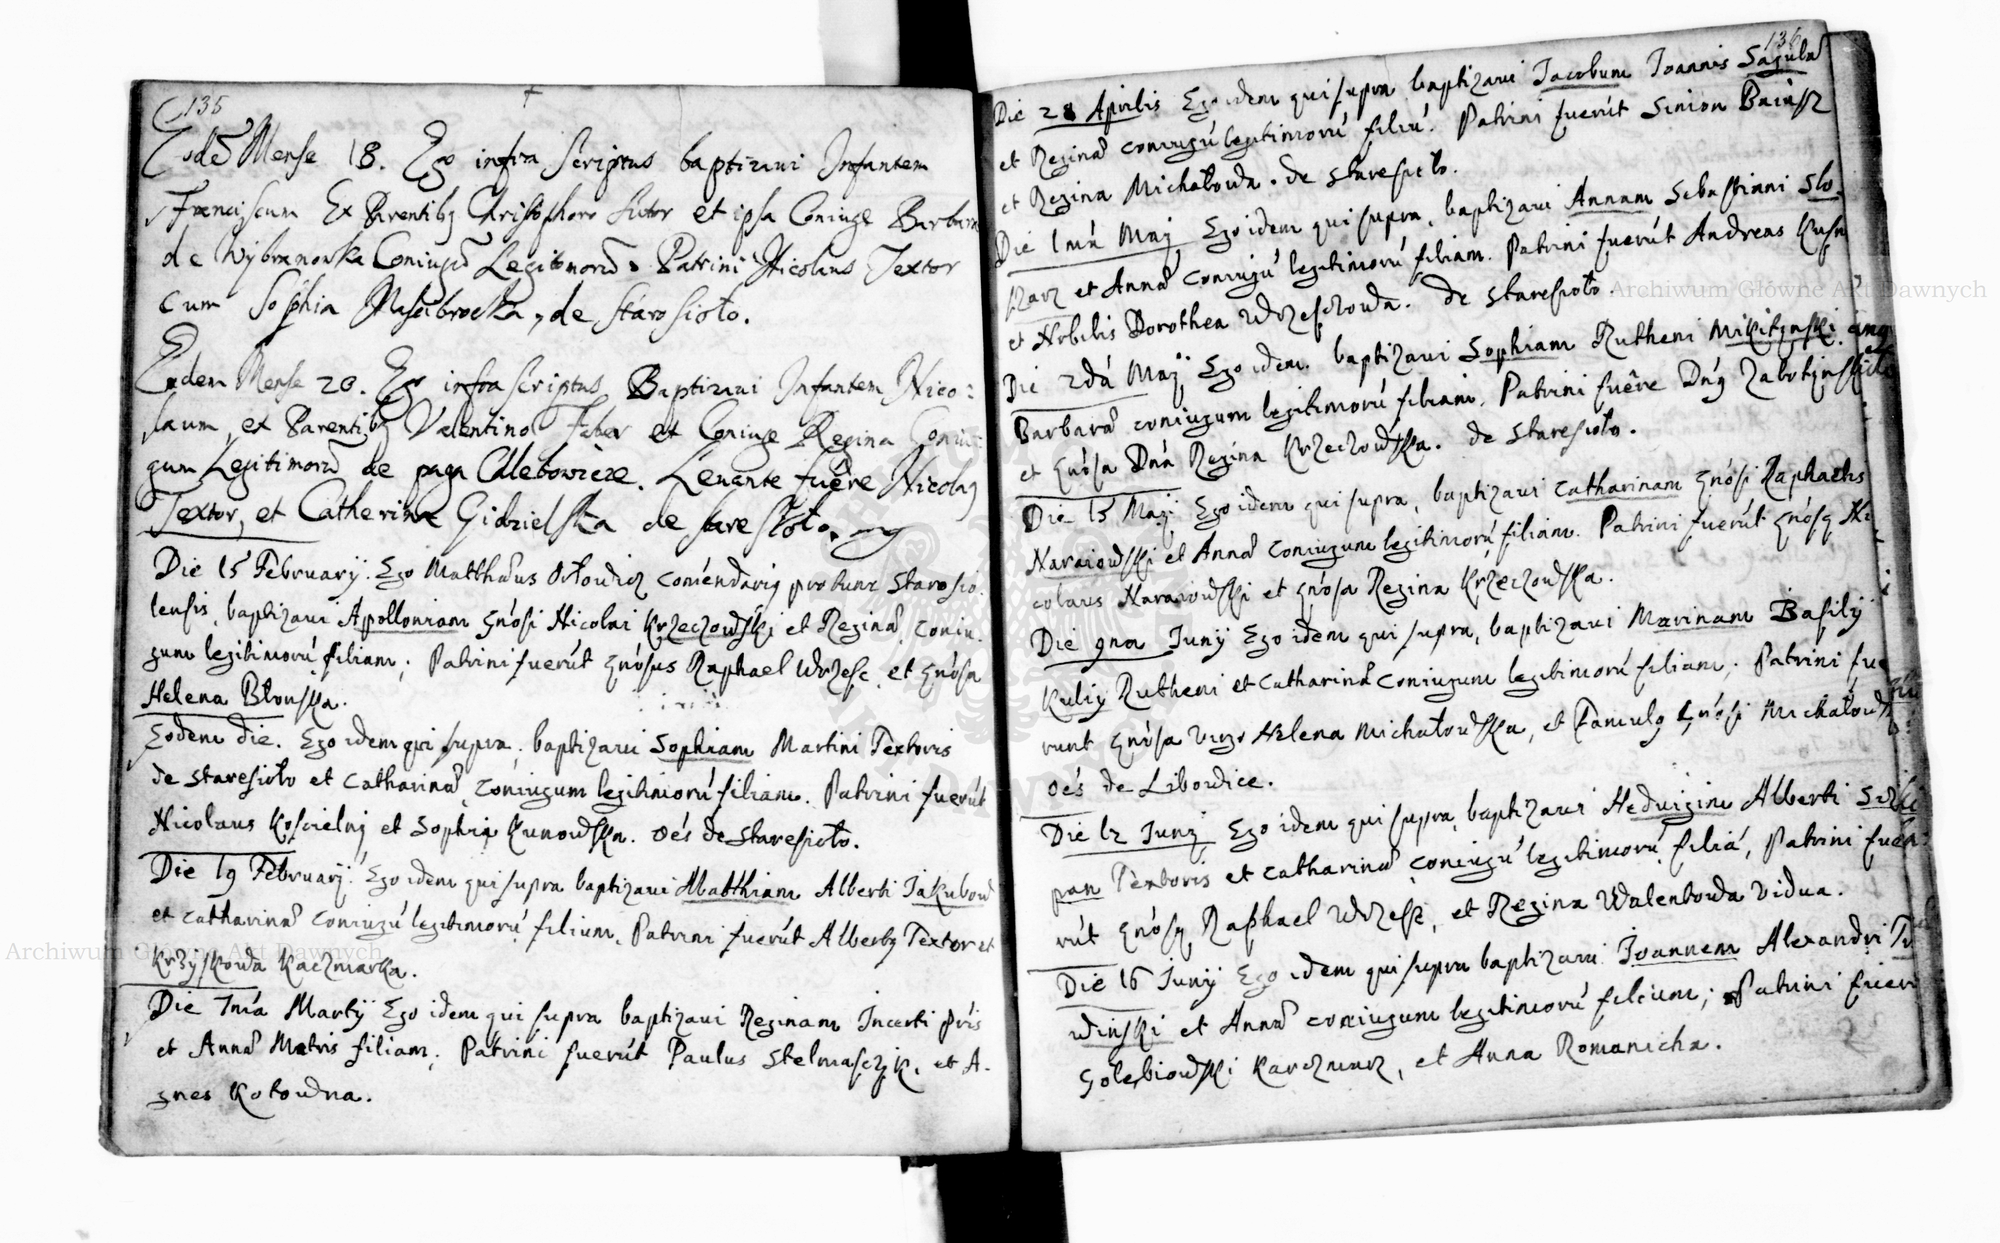 135
Eodē Mense 18. Ego infra scriptus baptizavi Infantem
Franciscum Ex Parentibꝫ Christophoro Sutor et ipsa Coniuge Barbara
de Wybranowka Coniugū Legitimorū. Patrini Nicolaus Textor
cum Sophia de Starosioło.
Eodem Mense 20. Ego infra scriptus Baptizavi Infantem Nico=
laum, ex Parentibꝫ Valentino Faber et Coniuge Regina Coniu=
gum Legitimorū de pago Chlebowicze. Levante fuêre Nicolaꝯ
Textor, et Catherina Gidzielska de Staresioło.
Die 15 Februarij. Ego Matthæus Orłowicz comendariꝯ pro tunc Starosio
lensis, baptizavi Apolloniam Gnósi Nicolai Krzeczowski et Reginæ coniu-
gum legitimorú filiam; Patrini fuerút Gnósus Raphael Wrzesc, et Gnósa
Helena Błonska.
Eodem die. Ego idem qui supra, baptizavi Sophiam Martini Textoris
de Staresioło et Catharinæ coniugum legitimorú filiam. Patrini fuerút
Nicolaus Koscielnj et Sophia Kunowska. oés de Staresioło.
Die 19 Februarij. Ego idem qui supra baptizavi Matthiam Alberti Jakubow
et Catharinæ coniugú legitimorú filium, Patrini fuerút Albertꝯ Textor et
Krzyskowa Kaczmarka.
Die 7má Martij Ego idem qui supra baptizavi Reginam Incerti pris
et Annæ Matris filiam; Patrini fuerút Paulus Stelmasczyk, et A-
gnes Kotowna.
136
Die 28 Aprilis Ego idem qui supra baptizavi Jacobum Joannis Sagula
et Reginæ coniugú legitimorú filiú. Patrini fuerút Simon
et Regina Michałowa. de Staresioło.
Die 1má Maij Ego idem qui supra, baptizavi Annam Sebastiani Slo-
sarz et Annæ coniugú legitimorú filiam. Patrini fuerút Andreas Kusn
et Nobilis Dorothea Wrzesczowa. de Staresioło.
Die 2dá Maij Ego idem baptizavi Sophiam Rutheni Mikitynski
Barbaræ coniugum legitimorú filiam. Patrini fuêre Dnꝯ Zabotynski
et Gnósa Dná Regina Krzeczowska. de Staresioło.
Die 15 Maij Ego idem qui supra, baptizavi Catharinam Gnósi Raphaelis
Naraiowski et Annæ coniugum legitimorú filiam. Patrini fuerút Gnósꝯ Ni
colaus Naraiowski et Gnósa Regina Krzeczowska.
Die 9na Junij Ego idem qui supra, baptizavi Marinam Basilij
Kulij Rutheni et Catharinæ coniugum legitimorú filiam; Patrini fue
runt Gnósa virgo Helena Michałowska, et Famulꝯ Gnósi Michałows
oés de Libowice.
Die 12 Junij Ego idem qui supra, baptizavi Hedvigim Alberti
pan Textoris et Catharinæ coniugú legitimorú filiá, Patrini fue
rút Gnósꝯ Raphael Wrzesz, et Regina Walentowa vidua.
Die 16 Junij Ego idem qui supra baptizavi Joannem Alexandri Tu
winski et Annæ coniugum legitimorú filium; Patrini fuer
Golębiowski Karczmarz, et Anna Romanicha.
Archiwum Główne Akt Dawnych
Archiwum Główne Akt Dawnych